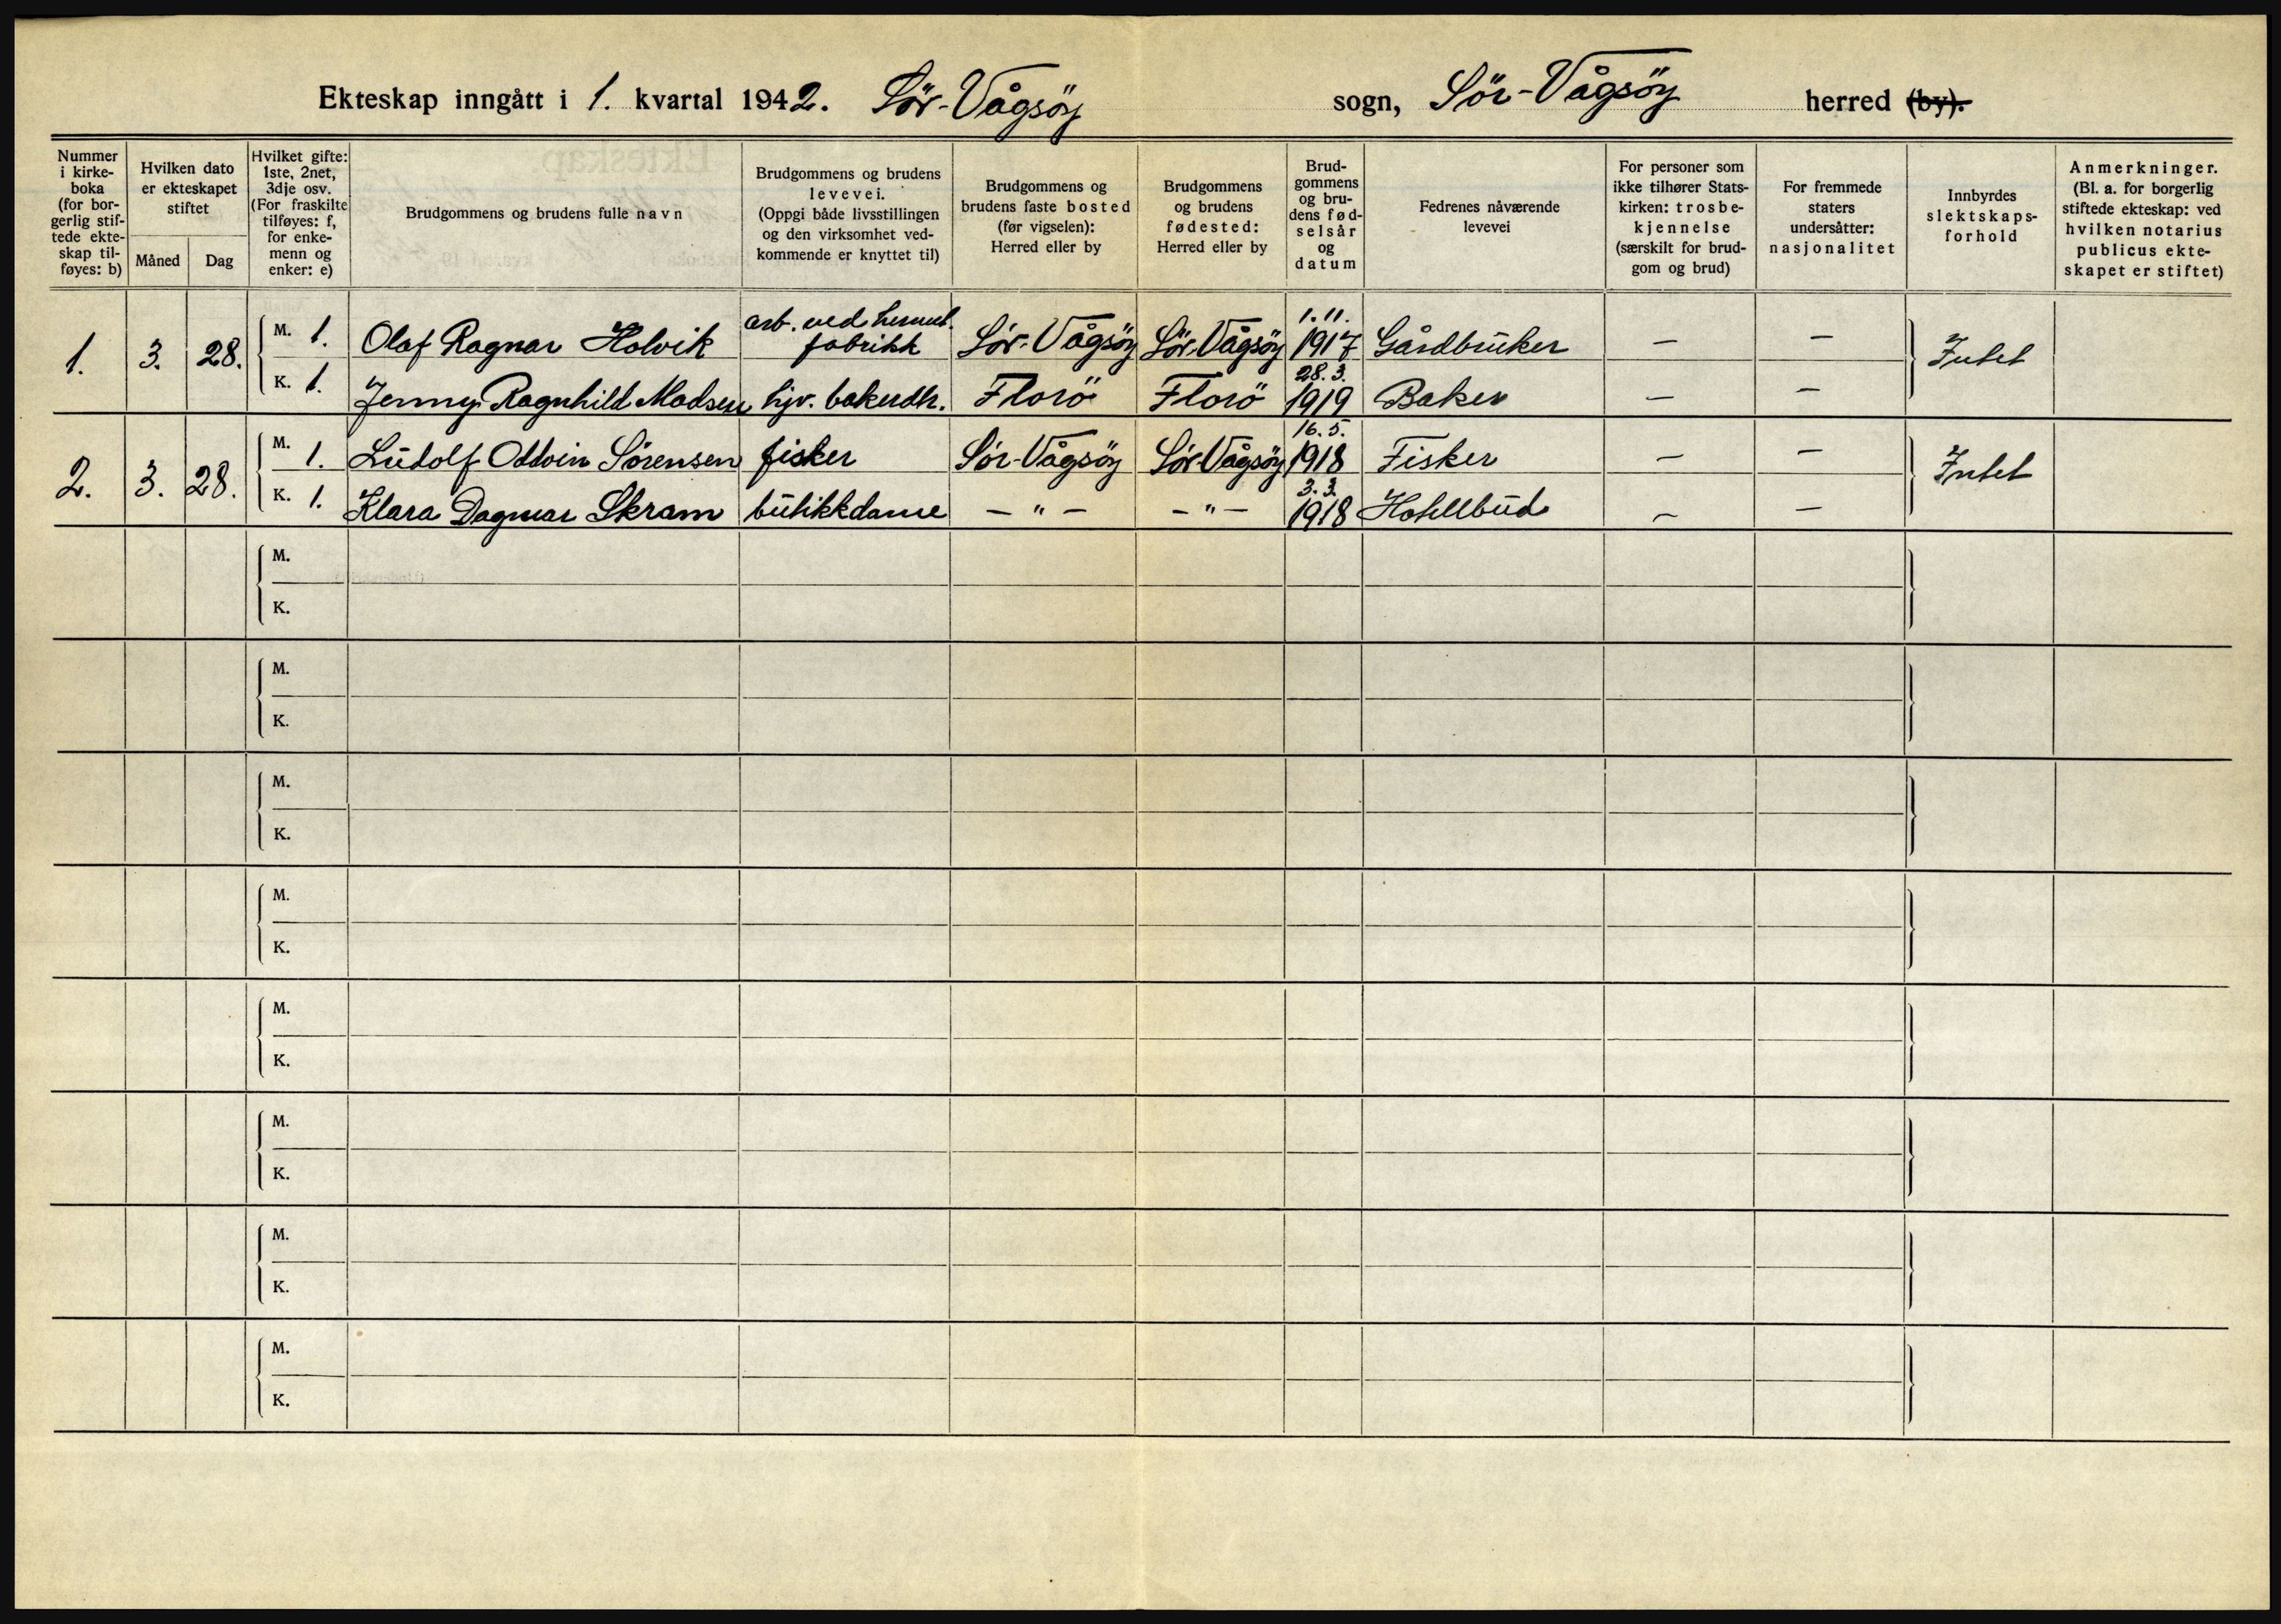 Ekteskap inngått i 1. kvartal 1942. Sör-Vågsöy sogn, Sör-Vågsöy herred (by).
Nummer i kirkeboka (for borgerlig stiftede ekteskap tilføyes: b)
Hvilken dato er ekteskapet stiftet
Måned
Dag
Hvilket gifte: 1ste, 2net, 3dje osv. (For fraskilte tilføyes: f, for enkemenn og enker: e)
Brudgommens og brudens fulle navn
Brudgommens og brudens levevei. (Oppgi både livsstillingen og den virksomhet vedkommende er knyttet til)
Brudgommens og brudens faste bosted (før vigselen): Herred eller by
Brudgommens og brudens fødested: Herred eller by
Brudgommens og brudens fødselsår og datum
Fedrenes nåværende levevei
For personer som ikke tilhører Statskirken: trosbekjennelse (særskilt for brudgom og brud)
For fremmede staters undersåtter: nasjonalitet
Innbyrdes slektskapsforhold
Anmerkninger. (Bl. a. for borgerlig stiftede ekteskap: ved hvilken notarius publicus ekteskapet er stiftet)
1. 3. 28. M. 1. Olaf Ragnar Holvik arb. ved hermet. fabrikk Sör-Vågsöy Sör-Vågsöy 1.11. 1917 Gårdbruker — — Intet
K. 1. Jenny Ragnhild Madsen hjv. bakerdtr. Florö Florö 28.3. 1919 Baker — —
2. 3. 28. M. 1. Ludolf Oddvin Sörensen fisker Sör-Vågsöy Sör-Vågsöy 16.5. 1918 Fisker — — Intet
K. 1. Klara Dagmar Skram butikkdame — " — — " — 3.3. 1918 Hotellbud — —
M.
K.
M.
K.
M.
K.
M.
K.
M.
K.
M.
K.
M.
K.
M.
K.